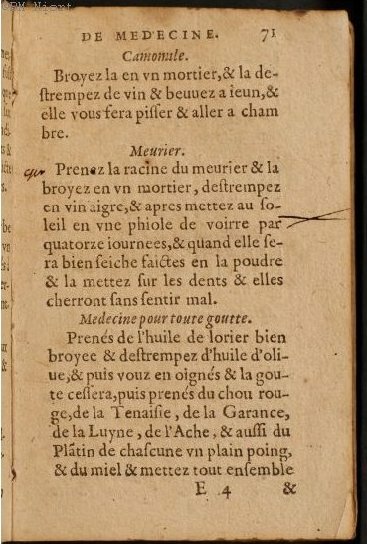 DE MEDECINE. 71
Camomile.
Broyez la en vn mortier,& la de-
ſtrempez de vin & beuuez a ieun,&
elle vous fera piſſer & aller a cham
bre.
Meurier.
Prenez la racine du meurier & la
broyez en vn mortier, deſtrempez
en vin aigre,& apres mettez au ſo-
leil en vne phiole de voirre par
quatorze iournees,& quand elle ſe-
ra bien ſeiche faictes en la poudre
& la mettez ſur les dents & elles
cherront ſans ſentir mal.
Medecine pour toute goutte.
Prenés de l'huile de lorier bien
broyee & deſtrempez d'huile d'oli-
ue,& puis vouz en oignés & la gou-
te ceſſera,puis prenés du chou rou-
ge,de la Tenaiſie, de la Garance,
de la Luyne, de l'Ache, & auſſi du
Plātin de chaſcune vn plain poing,
& du miel & mettez tout enſemble
E 4 &